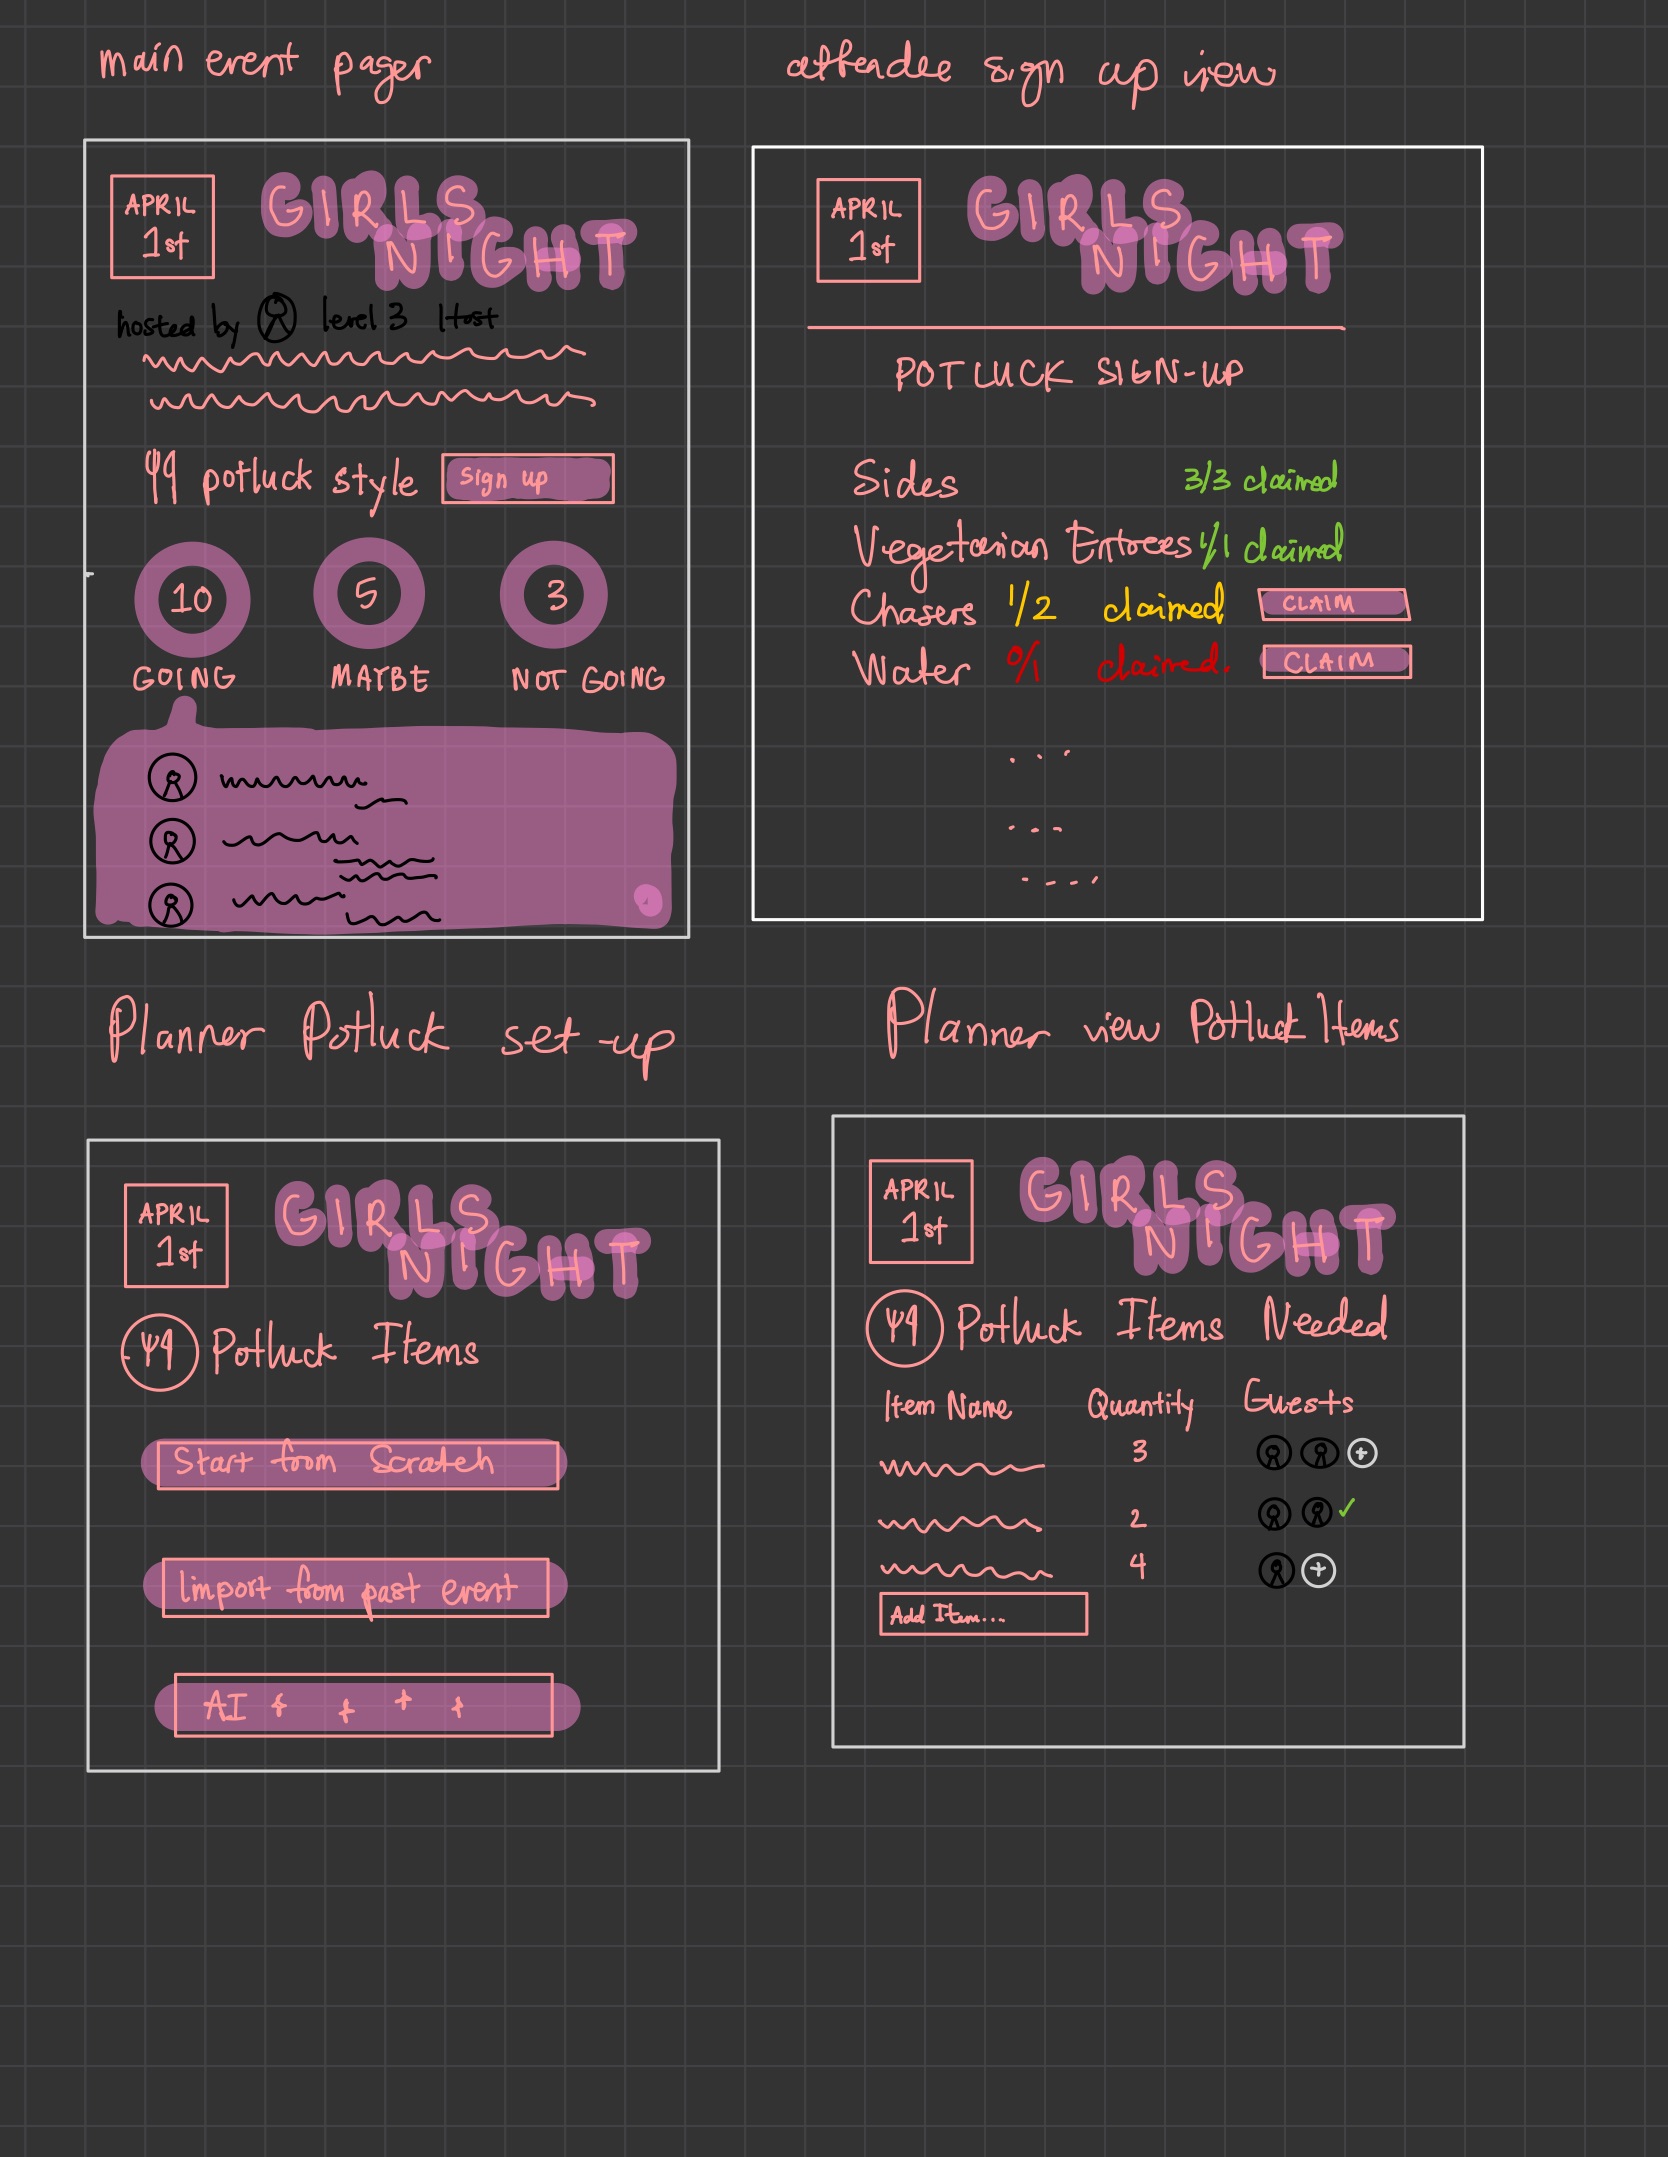 main event pager
APRIL
1st
GIRLS
NIGHT
hosted by level 3 Host
potluck style
Sign up
10
5
3
GOING
MAYBE
NOT GOING
attendee sign up view
APRIL
1st
GIRLS
NIGHT
POTLUCK SIGN-UP
Sides 3/3 claimed
Vegetarian Entrees 1/1 claimed
Chasers 1/2 claimed CLAIM
Water 0/1 claimed. CLAIM
...
...
....
Planner Potluck set-up
APRIL
1st
GIRLS
NIGHT
Potluck Items
Start from Scratch
Import from past event
AI
Planner view Potluck Items
APRIL
1st
GIRLS
NIGHT
Potluck Items Needed
Item Name Quantity Guests
3
2
4
Add Item...